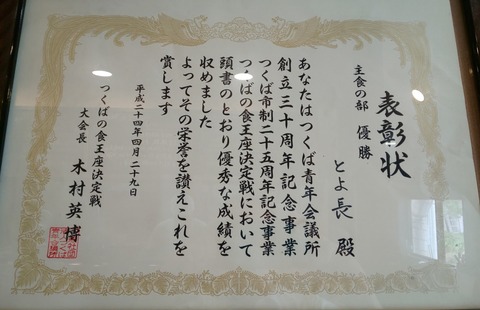 表彰状
主食の部 優勝
とよ長 殿
あなたはつくば青年会議所
創立三十周年記念事業
つくば市制二十五周年記念事業
つくばの食王座決定戦において
頭書のとおり優秀な成績を
収めました
よってその栄誉を讃えこれを
賞します
平成二十四年四月二十九日
つくばの食王座決定戦
大会長 木村英博